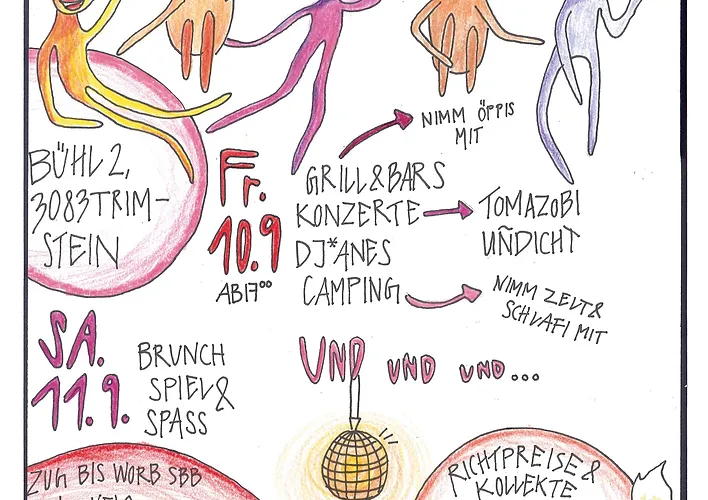 BÜHL 2,
3083 TRIM-
STEIN
Fr.
10.9
AB 17⁰⁰
GRILL & BARS
KONZERTE
DJ*ANES
CAMPING
NIMM ÖPPIS
MIT
TOMAZOBI
UÑDICHT
NIMM ZELT &
SCHLAFI MIT
SA.
11.9.
BRUNCH
SPIEL &
SPASS
UND UND UND...
ZUG BIS WORB SBB
RICHTPREISE &
KOLLEKTE